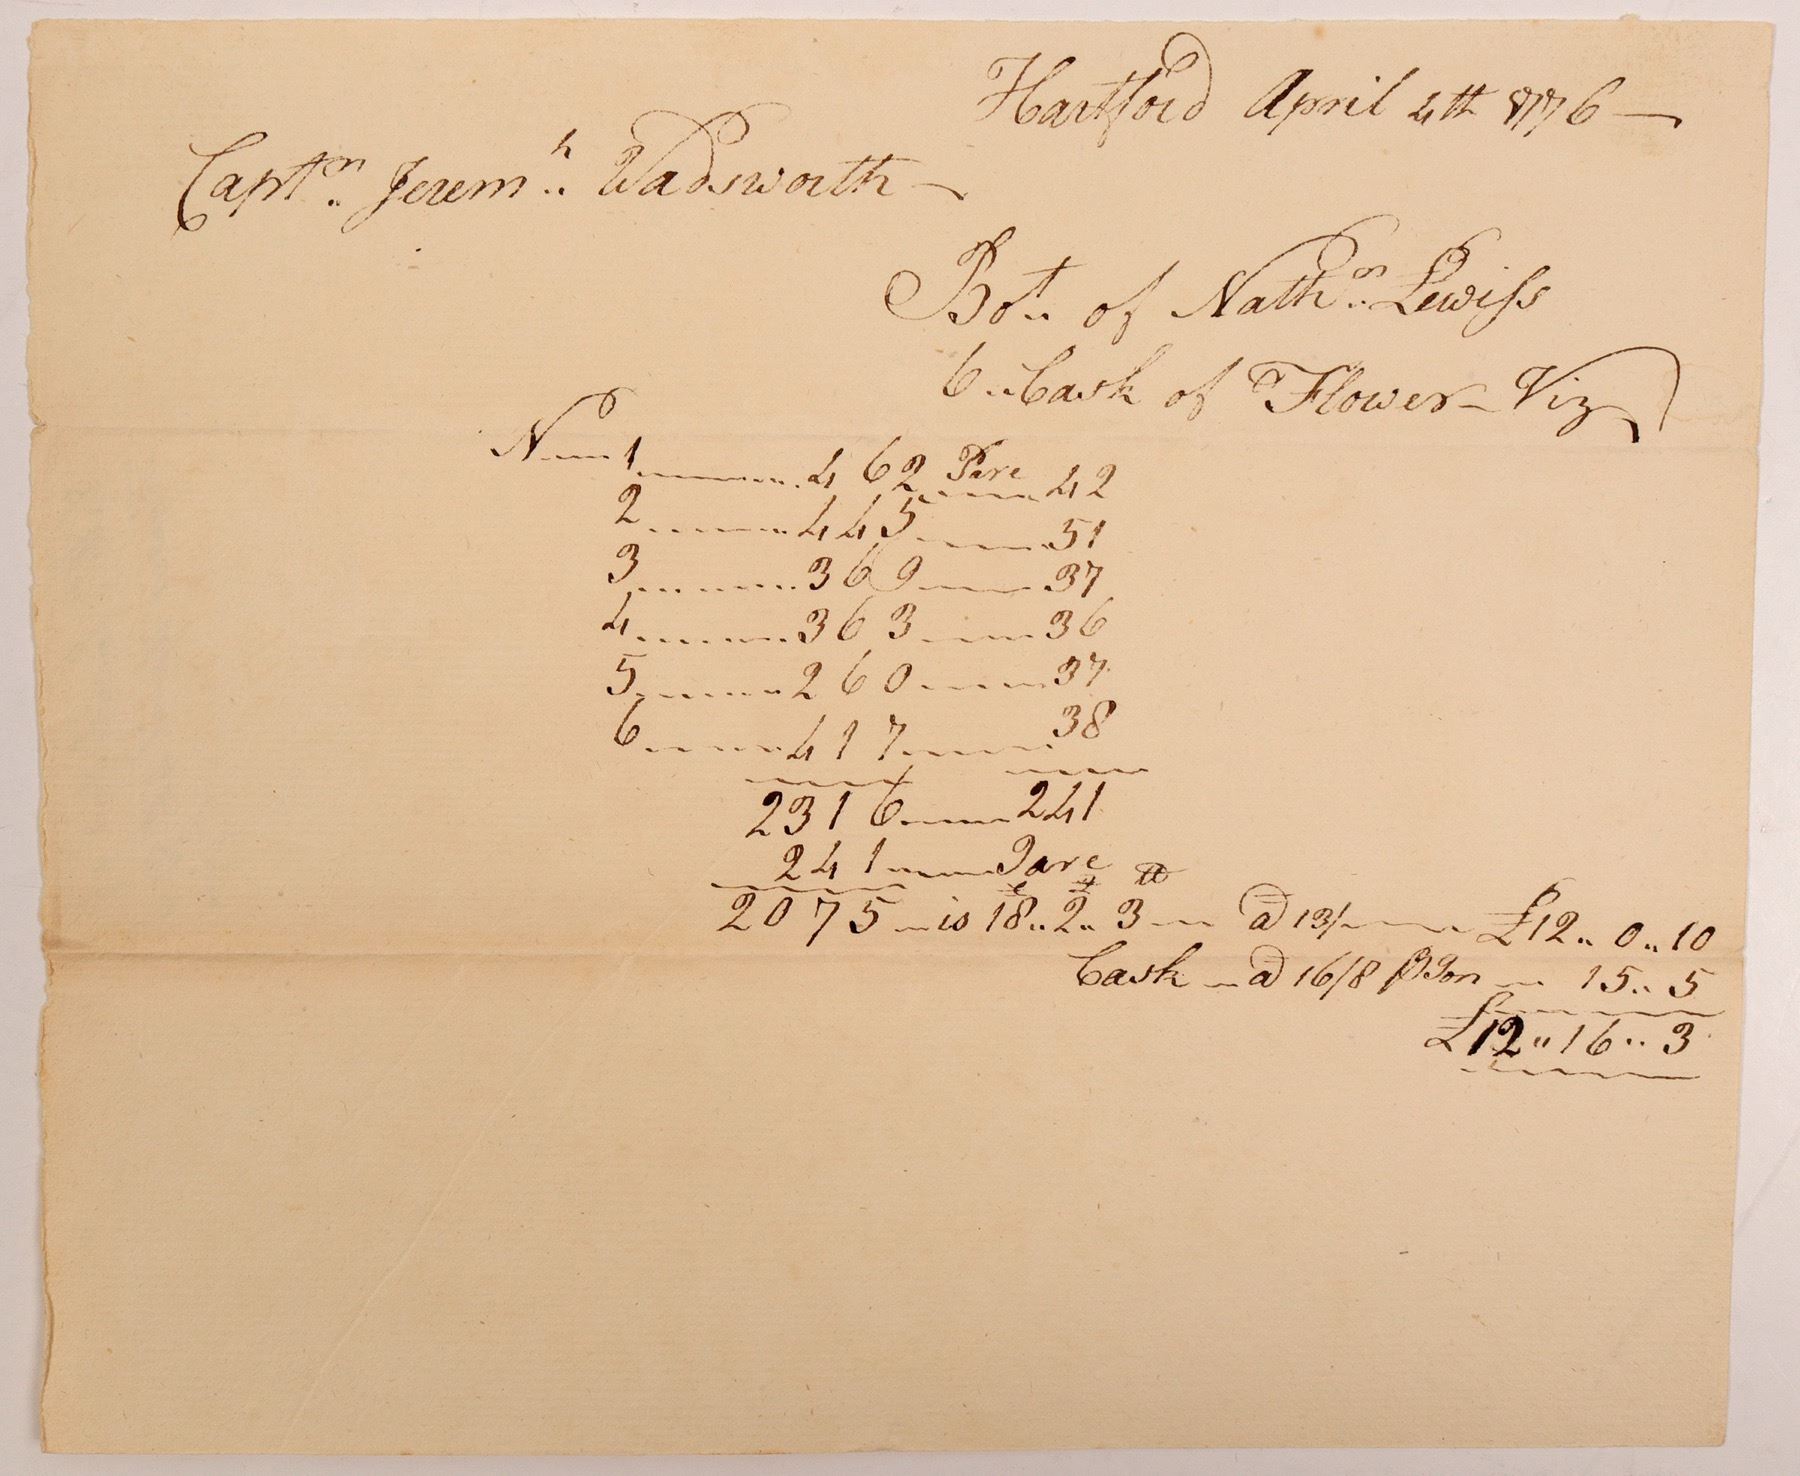 Hartford April 4th 1776
Captn Jeremh Wadsworth
Bot of Nathn Lewiss
6 Cask of Flower Viz
N 1 462 Tare 42
2 445 51
3 369 37
4 363 36
5 260 37
6 417 38
2316 241
241 Tare
C q lb
2075 is 18 2 3 @ 13/ £12 0 10
Cask @ 16/8 ⅌ Ton 15 5
£12 16 3